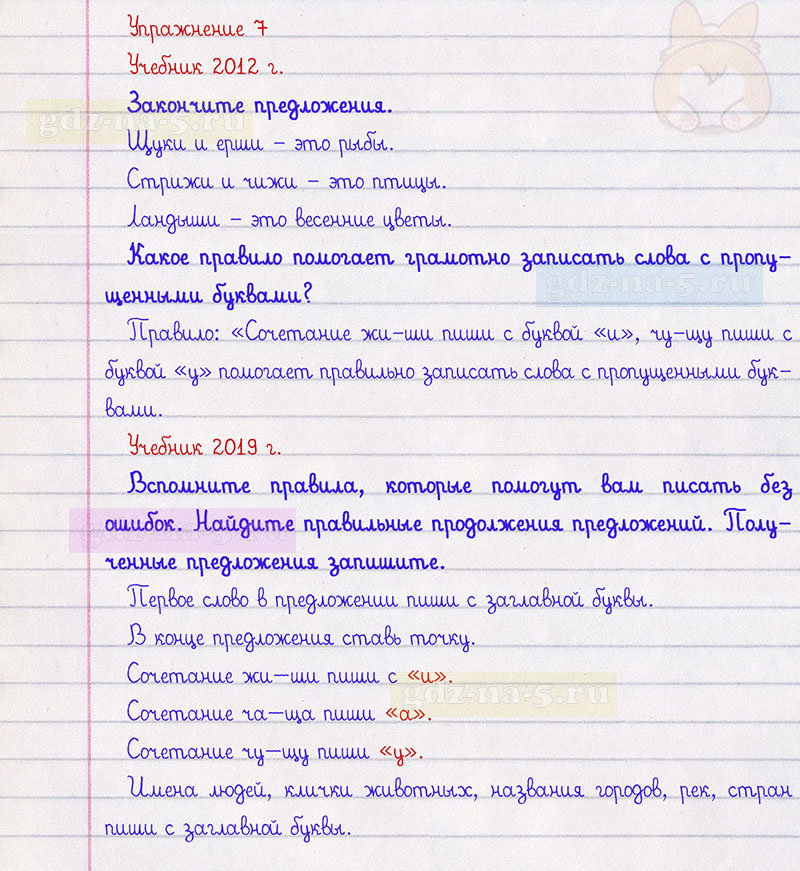 Упражнение 7
Учебник 2012 г.
Закончите предложения.
gdz-na-5.ru
Щуки и ерши – это рыбы.
Стрижи и чижи – это птицы.
Ландыши – это весенние цветы.
Какое правило помогает грамотно записать слова с пропу-
щенными буквами?
gdz-na-5.ru
Правило: «Сочетание жи-ши пиши с буквой «и», чу-щу пиши с
буквой «у» помогает правильно записать слова с пропущенными бук-
вами.
Учебник 2019 г.
Вспомните правила, которые помогут вам писать без
ошибок. Найдите правильные продолжения предложений. Полу-
gdz-na-5.ru
ченные предложения запишите.
Первое слово в предложении пиши с заглавной буквы.
В конце предложения ставь точку.
Сочетание жи–ши пиши с «и».
gdz-na-5.ru
Сочетание ча–ща пиши «а».
Сочетание чу–щу пиши «у».
Имена людей, клички животных, названия городов, рек, стран
пиши с заглавной буквы.